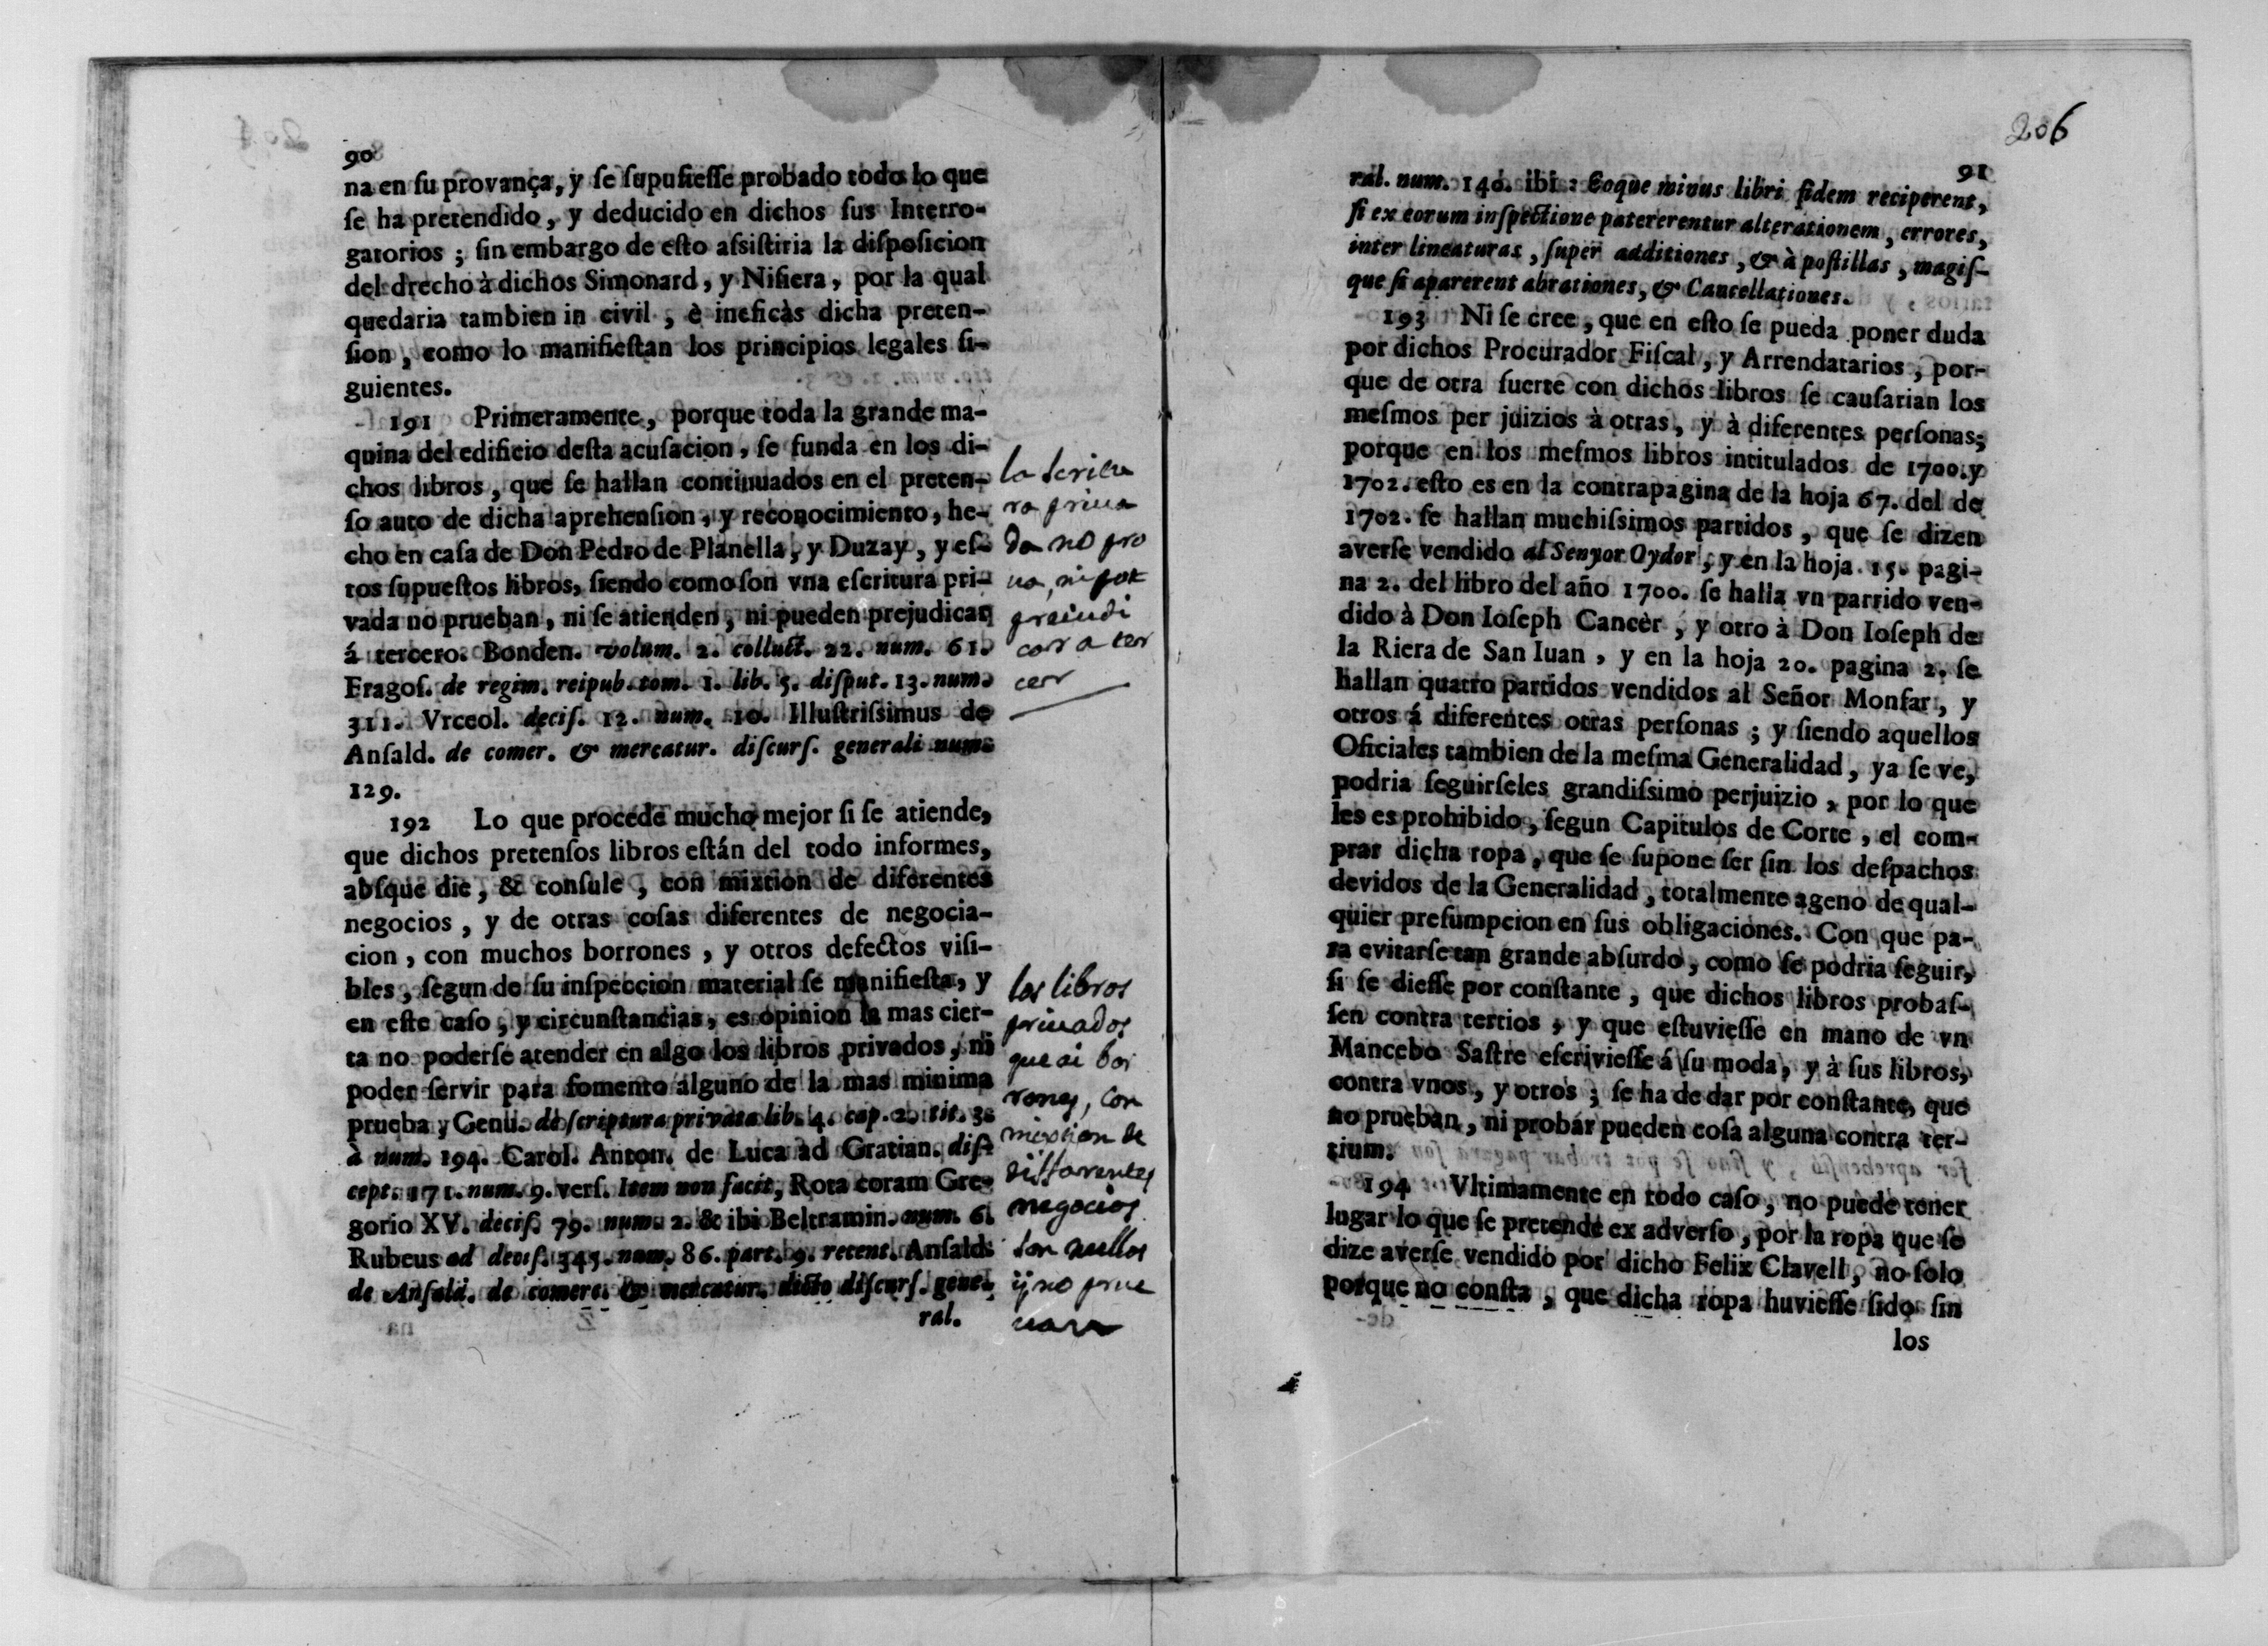 90
na en ſu provança, y ſe ſupuſieſſe probado todo lo que
ſe ha pretendido, y deducido en dichos ſus Interro-
gatorios ; ſin embargo de eſto aſsiſtiria la diſpoſicion
del drecho à dichos Simonard, y Niſiera, por la qual
quedaria tambien in civil , è ineficàs dicha preten-
ſion , como lo manifieſtan los principios legales ſi-
guientes.
191 Primeramente, porque toda la grande ma-
quina del edificio deſta acuſacion, ſe funda en los di-
chos libros , que ſe hallan continuados en el preten-
ſo auto de dicha aprehenſion, y reconocimiento, he-
cho en caſa de Don Pedro de Planella, y Duzay , y eſ-
tos ſupueſtos libros, ſiendo como ſon vna eſcritura pri-
vada no prueban, ni ſe atienden, ni pueden prejudicar
á tercero. Bonden. volum. 2. collutt. 22. num. 61.
Fragoſ. de regim. reipub. tom. 1. lib. 5. diſput. 13. num.
311. Vrceol. deciſ. 12. num. 10. Illuſtriſsimus de
Anſald. de comer. & mercatur. diſcurſ. generali num.
129.
192 Lo que procede mucho mejor ſi ſe atiende,
que dichos pretenſos libros eſtán del todo informes,
abſque die, & conſule , con mixtion de diferentes
negocios , y de otras coſas diferentes de negocia-
cion , con muchos borrones , y otros defectos viſi-
bles, ſegun de ſu inſpeccion material ſe manifieſta, y
en eſte caſo , y circunſtancias, es opinion la mas cier-
ta no poderſe atender en algo los libros privados , ni
poder ſervir para fomento alguno de la mas minima
prueba, Genu. de ſcriptura privata lib. 4. cap. 2. tit. 3.
à num. 194. Carol. Anton. de Luca ad Gratian. diſ-
cept. 171. num. 9. verſ. Item non facit, Rota coram Gre-
gorio XV. deciſ. 79. num. 2. & ibi Beltramin. num. 6.
Rubeus ad deciſ. 345. num. 86. part. 9. recent. Anſald.
de Anſald. de comerc. & mercatur. dicto diſcurſ. gene-
ral.
la scritu
ra priua
da no pro
ua, ni pot
preiudi
car a ter
cer
los libros
priuados
que ai bor
rones, con
mixtion de
differentes
negocios
son nullos
y no prue
uan
206
91
ral. num. 140. ibi : Eoque minus libri fidem reciperent,
ſi ex eorum inſpectione patererentur alterationem, errores,
inter lineaturas, ſuper additiones , & à poſtillas , magiſ-
que ſi aparerent abrationes, & Cancellationes.
193 Ni ſe cree, que en eſto ſe pueda poner duda
por dichos Procurador Fiſcal, y Arrendatarios , por-
que de otra ſuerte con dichos libros ſe cauſarian los
meſmos per juizios à otras, y à diferentes perſonas;
porque en los meſmos libros intitulados de 1700. y
1702. eſto es en la contrapagina de la hoja 67. del de
1702. ſe hallan muchiſsimos partidos , que ſe dizen
averſe vendido al Senyor Oydor ; y en la hoja 15. pagi-
na 2. del libro del año 1700. ſe halla vn partido ven-
dido à Don Ioſeph Cancèr , y otro à Don Ioſeph de
la Riera de San Iuan , y en la hoja 20. pagina 2. ſe
hallan quatro partidos vendidos al Señor Monfar , y
otros á diferentes otras perſonas ; y ſiendo aquellos
Oficiales tambien de la meſma Generalidad, ya ſe ve,
podria ſeguirſeles grandiſsimo perjuizio , por lo que
les es prohibido, ſegun Capitulos de Corte , el com-
prar dicha ropa, que ſe ſupone ſer ſin los deſpachos
devidos de la Generalidad, totalmente ageno de qual-
quier preſumpcion en ſus obligaciones. Con que pa-
ra evitarſe tan grande abſurdo, como ſe podria ſeguir,
ſi ſe dieſſe por conſtante , que dichos libros probaſ-
ſen contra tertios , y que eſtuvieſſe en mano de vn
Mancebo Saſtre eſcrivieſſe á ſu moda, y à ſus libros,
contra vnos, y otros ; ſe ha de dar por conſtante, que
no prueban, ni probár pueden coſa alguna contra ter-
tium.
194 Vltimamente en todo caſo, no puede tener
lugar lo que ſe pretende ex adverſo, por la ropa que ſe
dize averſe vendido por dicho Felix Clavell, no ſolo
porque no conſta , que dicha ropa huvieſſe ſido ſin
los